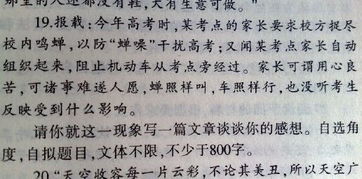 那里的人还都没有鞋，大有生意可做。”
19.报载：今年高考时，某考点的家长要求校方捉尽
校内鸣蝉，以防“蝉噪”干扰高考；又闻某考点家长自动
组织起来，阻止机动车从考点旁经过。家长可谓用心良
苦，可诸事难遂人愿，蝉照样叫，车照样行，也没听考生
反映受到什么影响。
请你就这一现象写一篇文章谈谈你的感想。自选角
度，自拟题目，文体不限，不少于800字。
20.“天空收容每一片云彩，不论其美丑，所以天空广